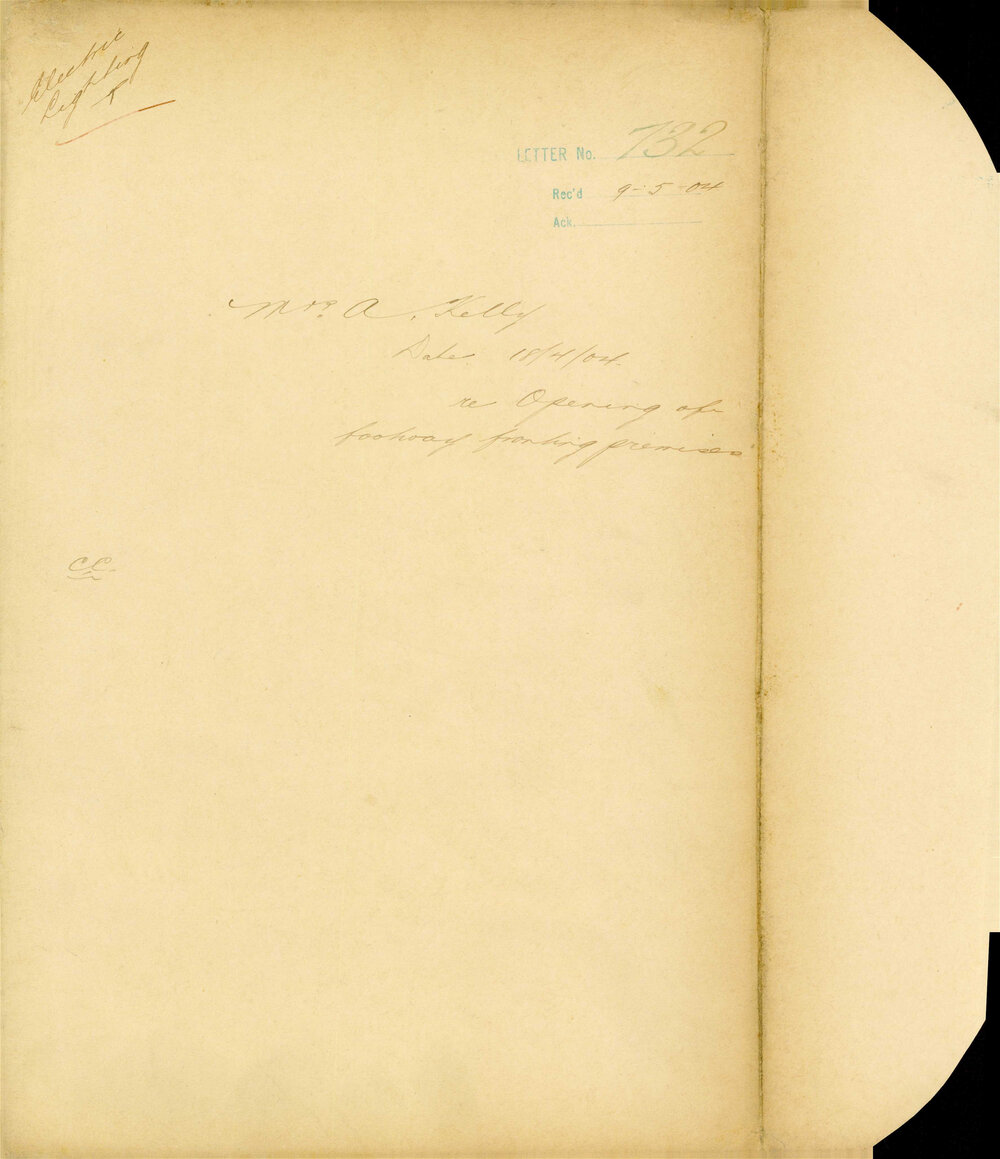 Electric
Lighting
LETTER No. 732
Rec'd 9-5-04
Ack.
Mrs. A. Kelly
Date 18/4/04
re Opening of
footway fronting premises
CC.